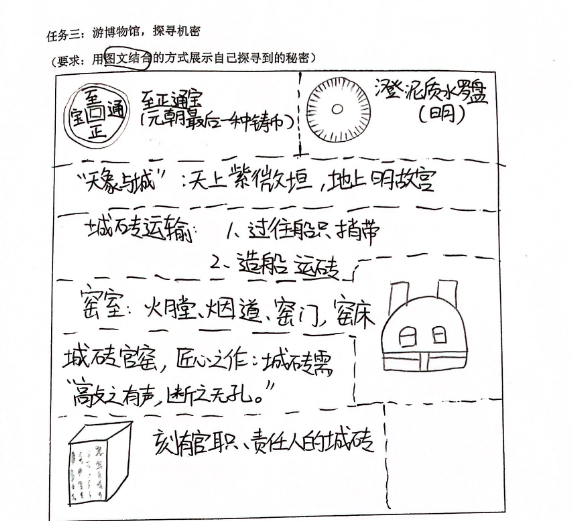 任务三：游博物馆，探寻机密
（要求：用图文结合的方式展示自己探寻到的秘密）
至
宝 通
正
至正通宝
（元朝最后一种铸币）
澄泥质水罗盘
（明）
“天象与城”：天上紫微垣，地上明故宫
城砖运输：1、过往船只捎带
2、造船运砖
窑室：火膛、烟道、窑门，窑床
城砖官窑，匠心之作：城砖需
“敲之有声，断之无孔。”
刻有官职、责任人的城砖